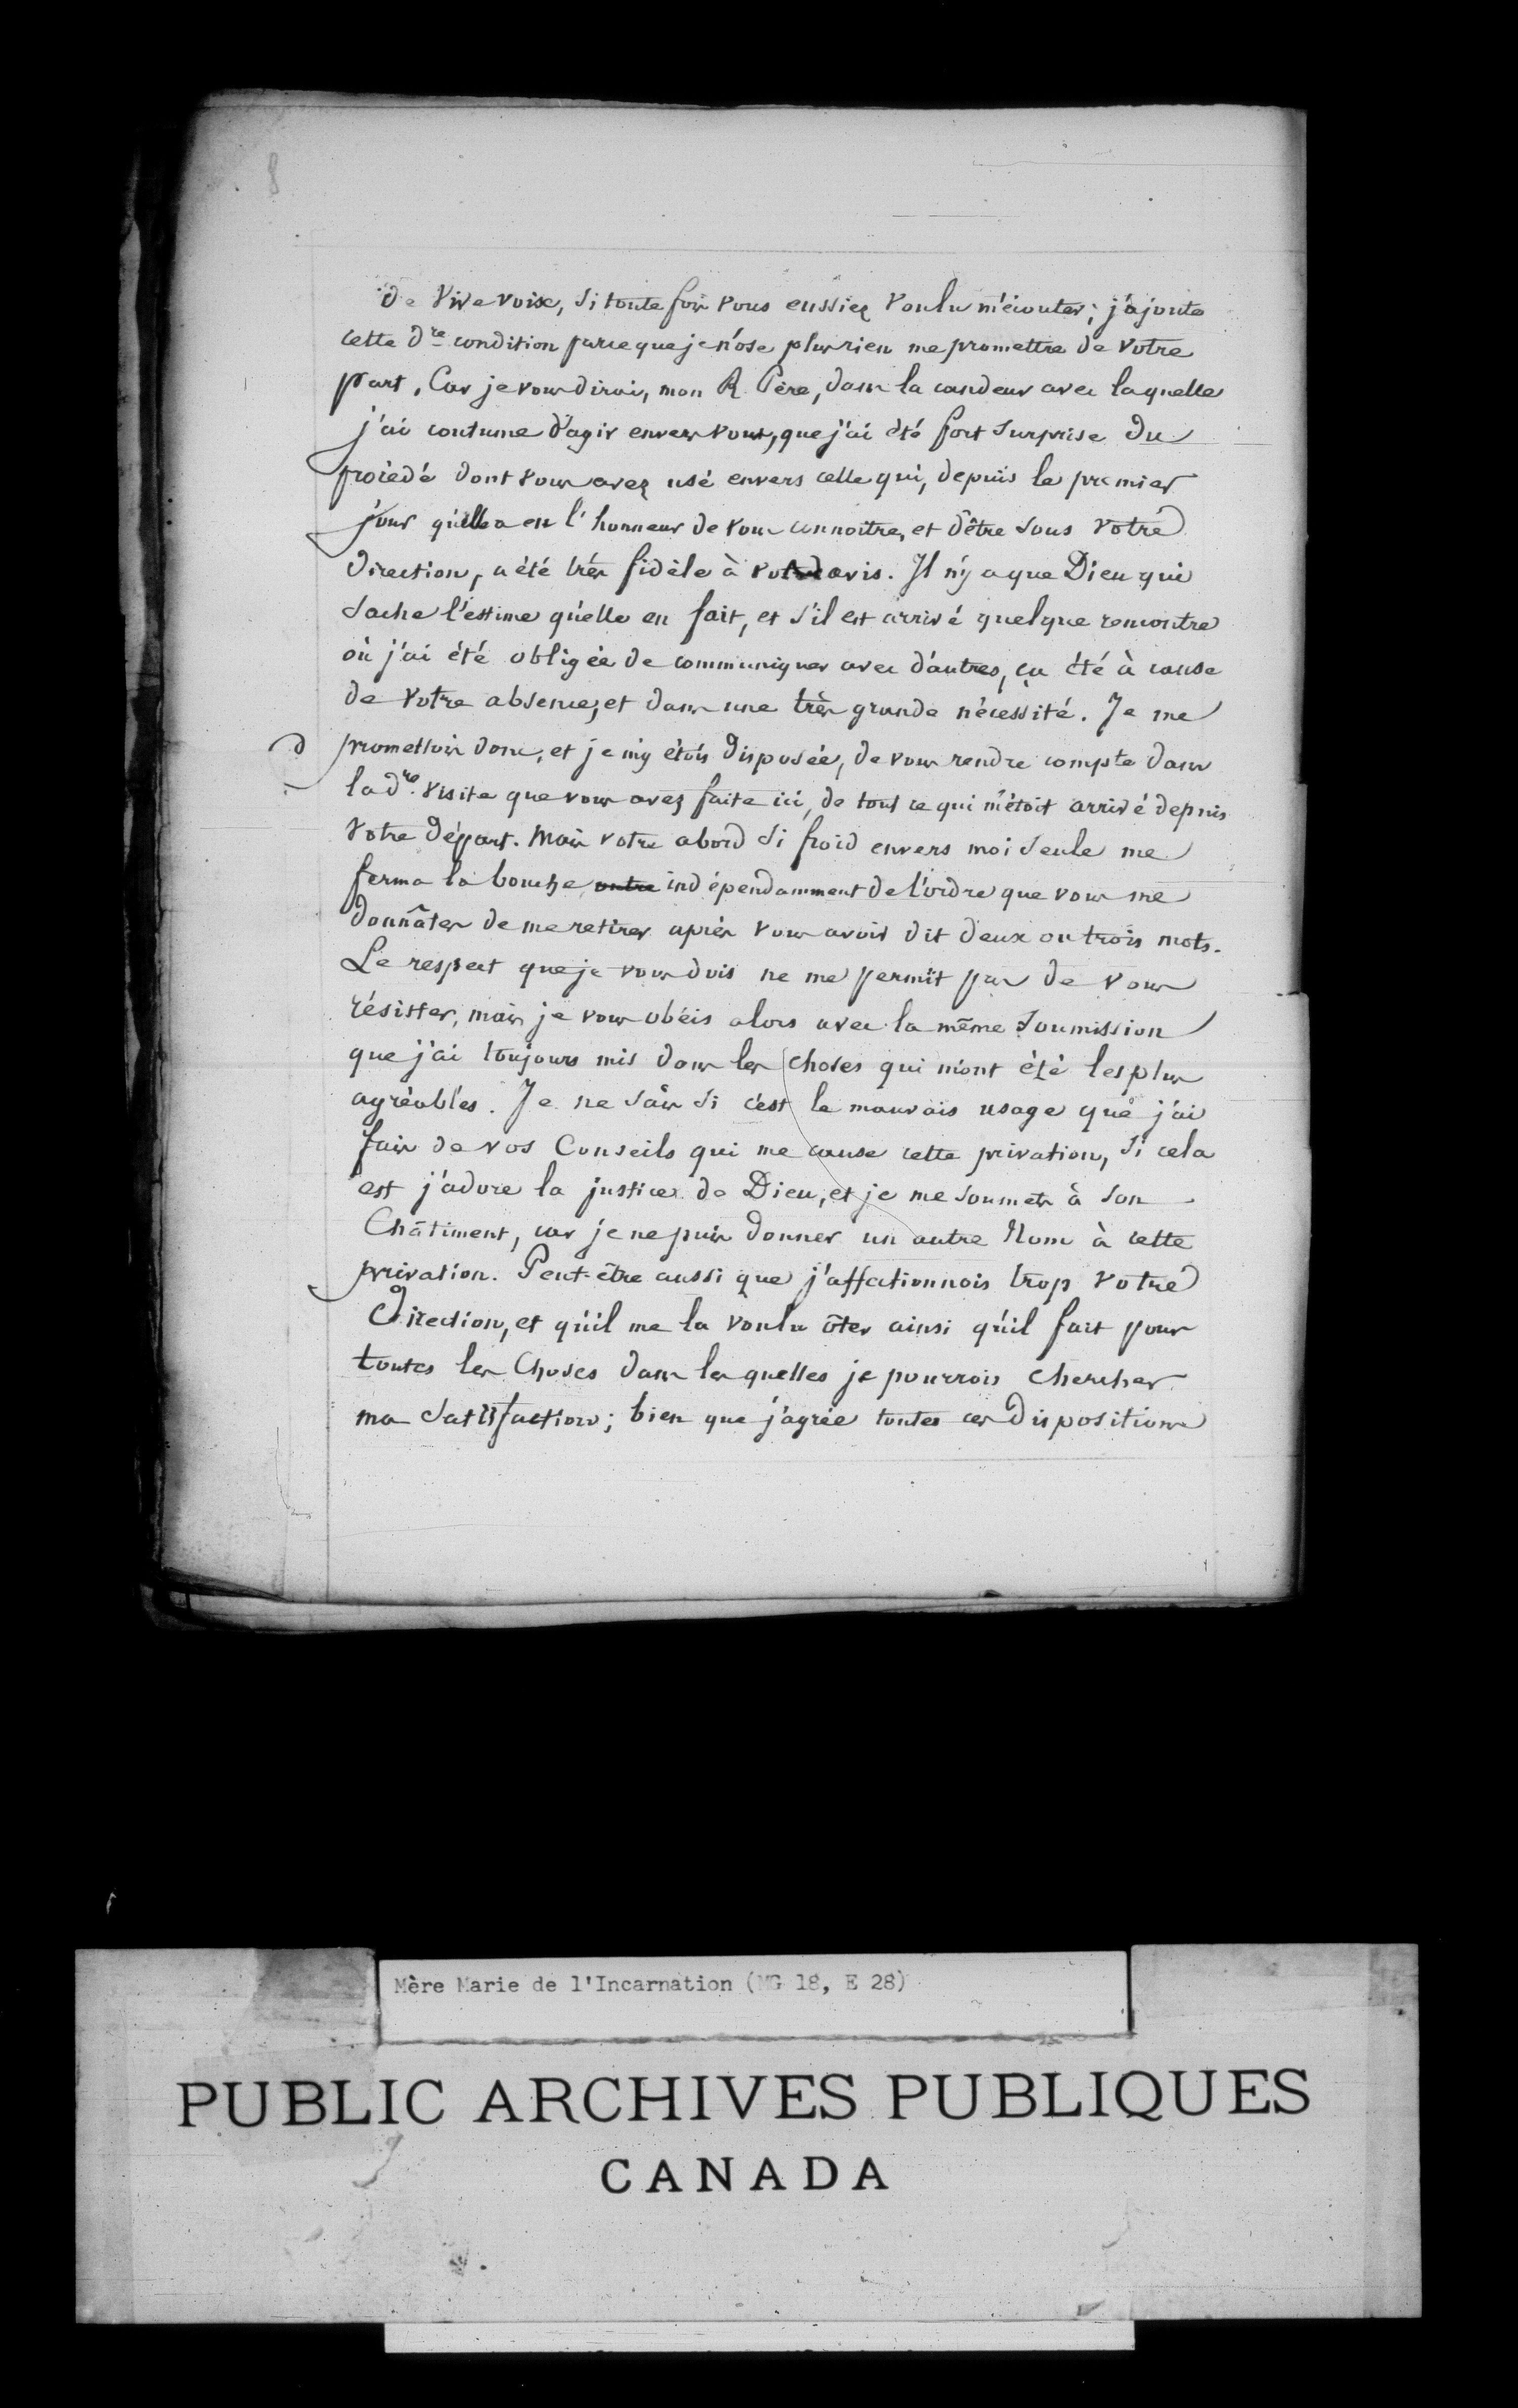 8
de vive voix, si toute fois vous eussiez voulu m'écouter; j'ajoute
cette dre condition parce que je n'ose plus rien me promettre de votre
part. Car je vous dirai, mon R. Père, dans la candeur avec laquelle
j'ai coutume d'agir envers vous, que j'ai été fort surprise du
procédé dont vous avez usé envers celle qui, depuis le premier
jour qu'elle a eu l'honneur de vous connoître, et d'être sous votre
direction, a été très fidèle à votre avis. Il n'y a que Dieu qui
sache l'estime qu'elle en fait, et s'il est arrivé quelque rencontre
où j'ai été obligée de communiquer avec d'autres, ça été à cause
de votre absence, et dans une très grande nécessité. Je me
promettois donc, et je m'y étois disposée, de vous rendre compte dans
la dre visite que vous avez faite ici, de tout ce qui m'étoit arrivé depuis
votre départ. Mais votre abord si froid envers moi seule me
ferma la bouche outre indépendamment de l'ordre que vous me
donnâtes de me retirer après vous avoir dit deux ou trois mots.
Le respect que je vous dois ne me permît pas de vous
résister, mais je vous obéis alors avec la même soumission
que j'ai toujours mis dans les choses qui m'ont été les plus
agréables. Je ne sais si c'est le mauvais usage que j'ai
fais de vos Conseils qui me cause cette privation, si cela
est j'adore la justice de Dieu, et je me soumets à son
Châtiment, car je ne puis donner un autre Nom à cette
privation. Peut-être aussi que j'affectionnois trop votre
Direction, et qu'il me la voulu ôter ainsi qu'il fait pour
toutes les Choses dans lesquelles je pourrois chercher
ma satisfaction; bien que j'agrée toutes ces dispositions
Mère Marie de l'Incarnation (MG 18, E 28)
PUBLIC ARCHIVES PUBLIQUES
CANADA